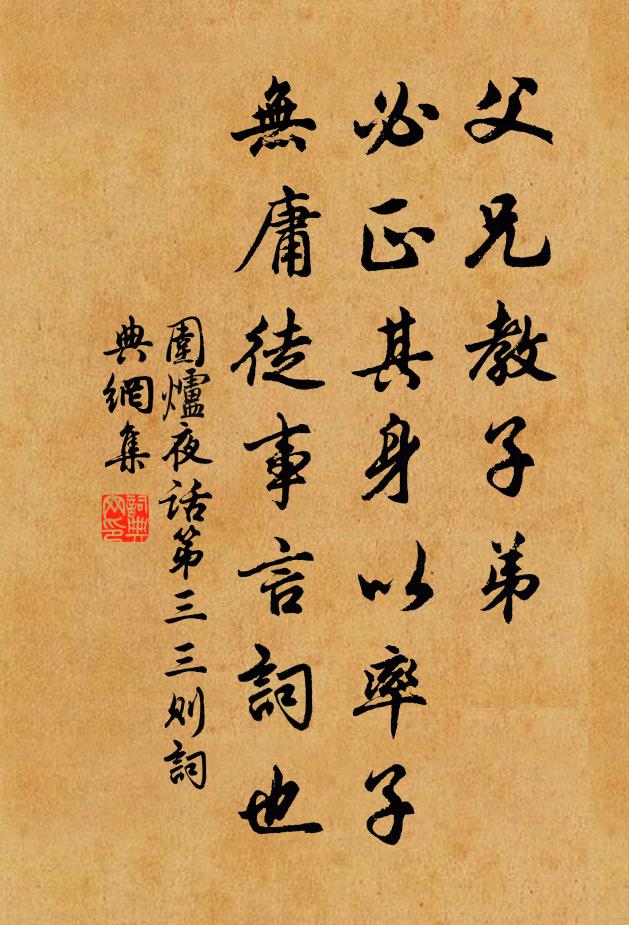 父兄教子弟
必正其身以率子
無庸徒事言詞也
圍爐夜话第三三则詞
典網集
詞典
网印